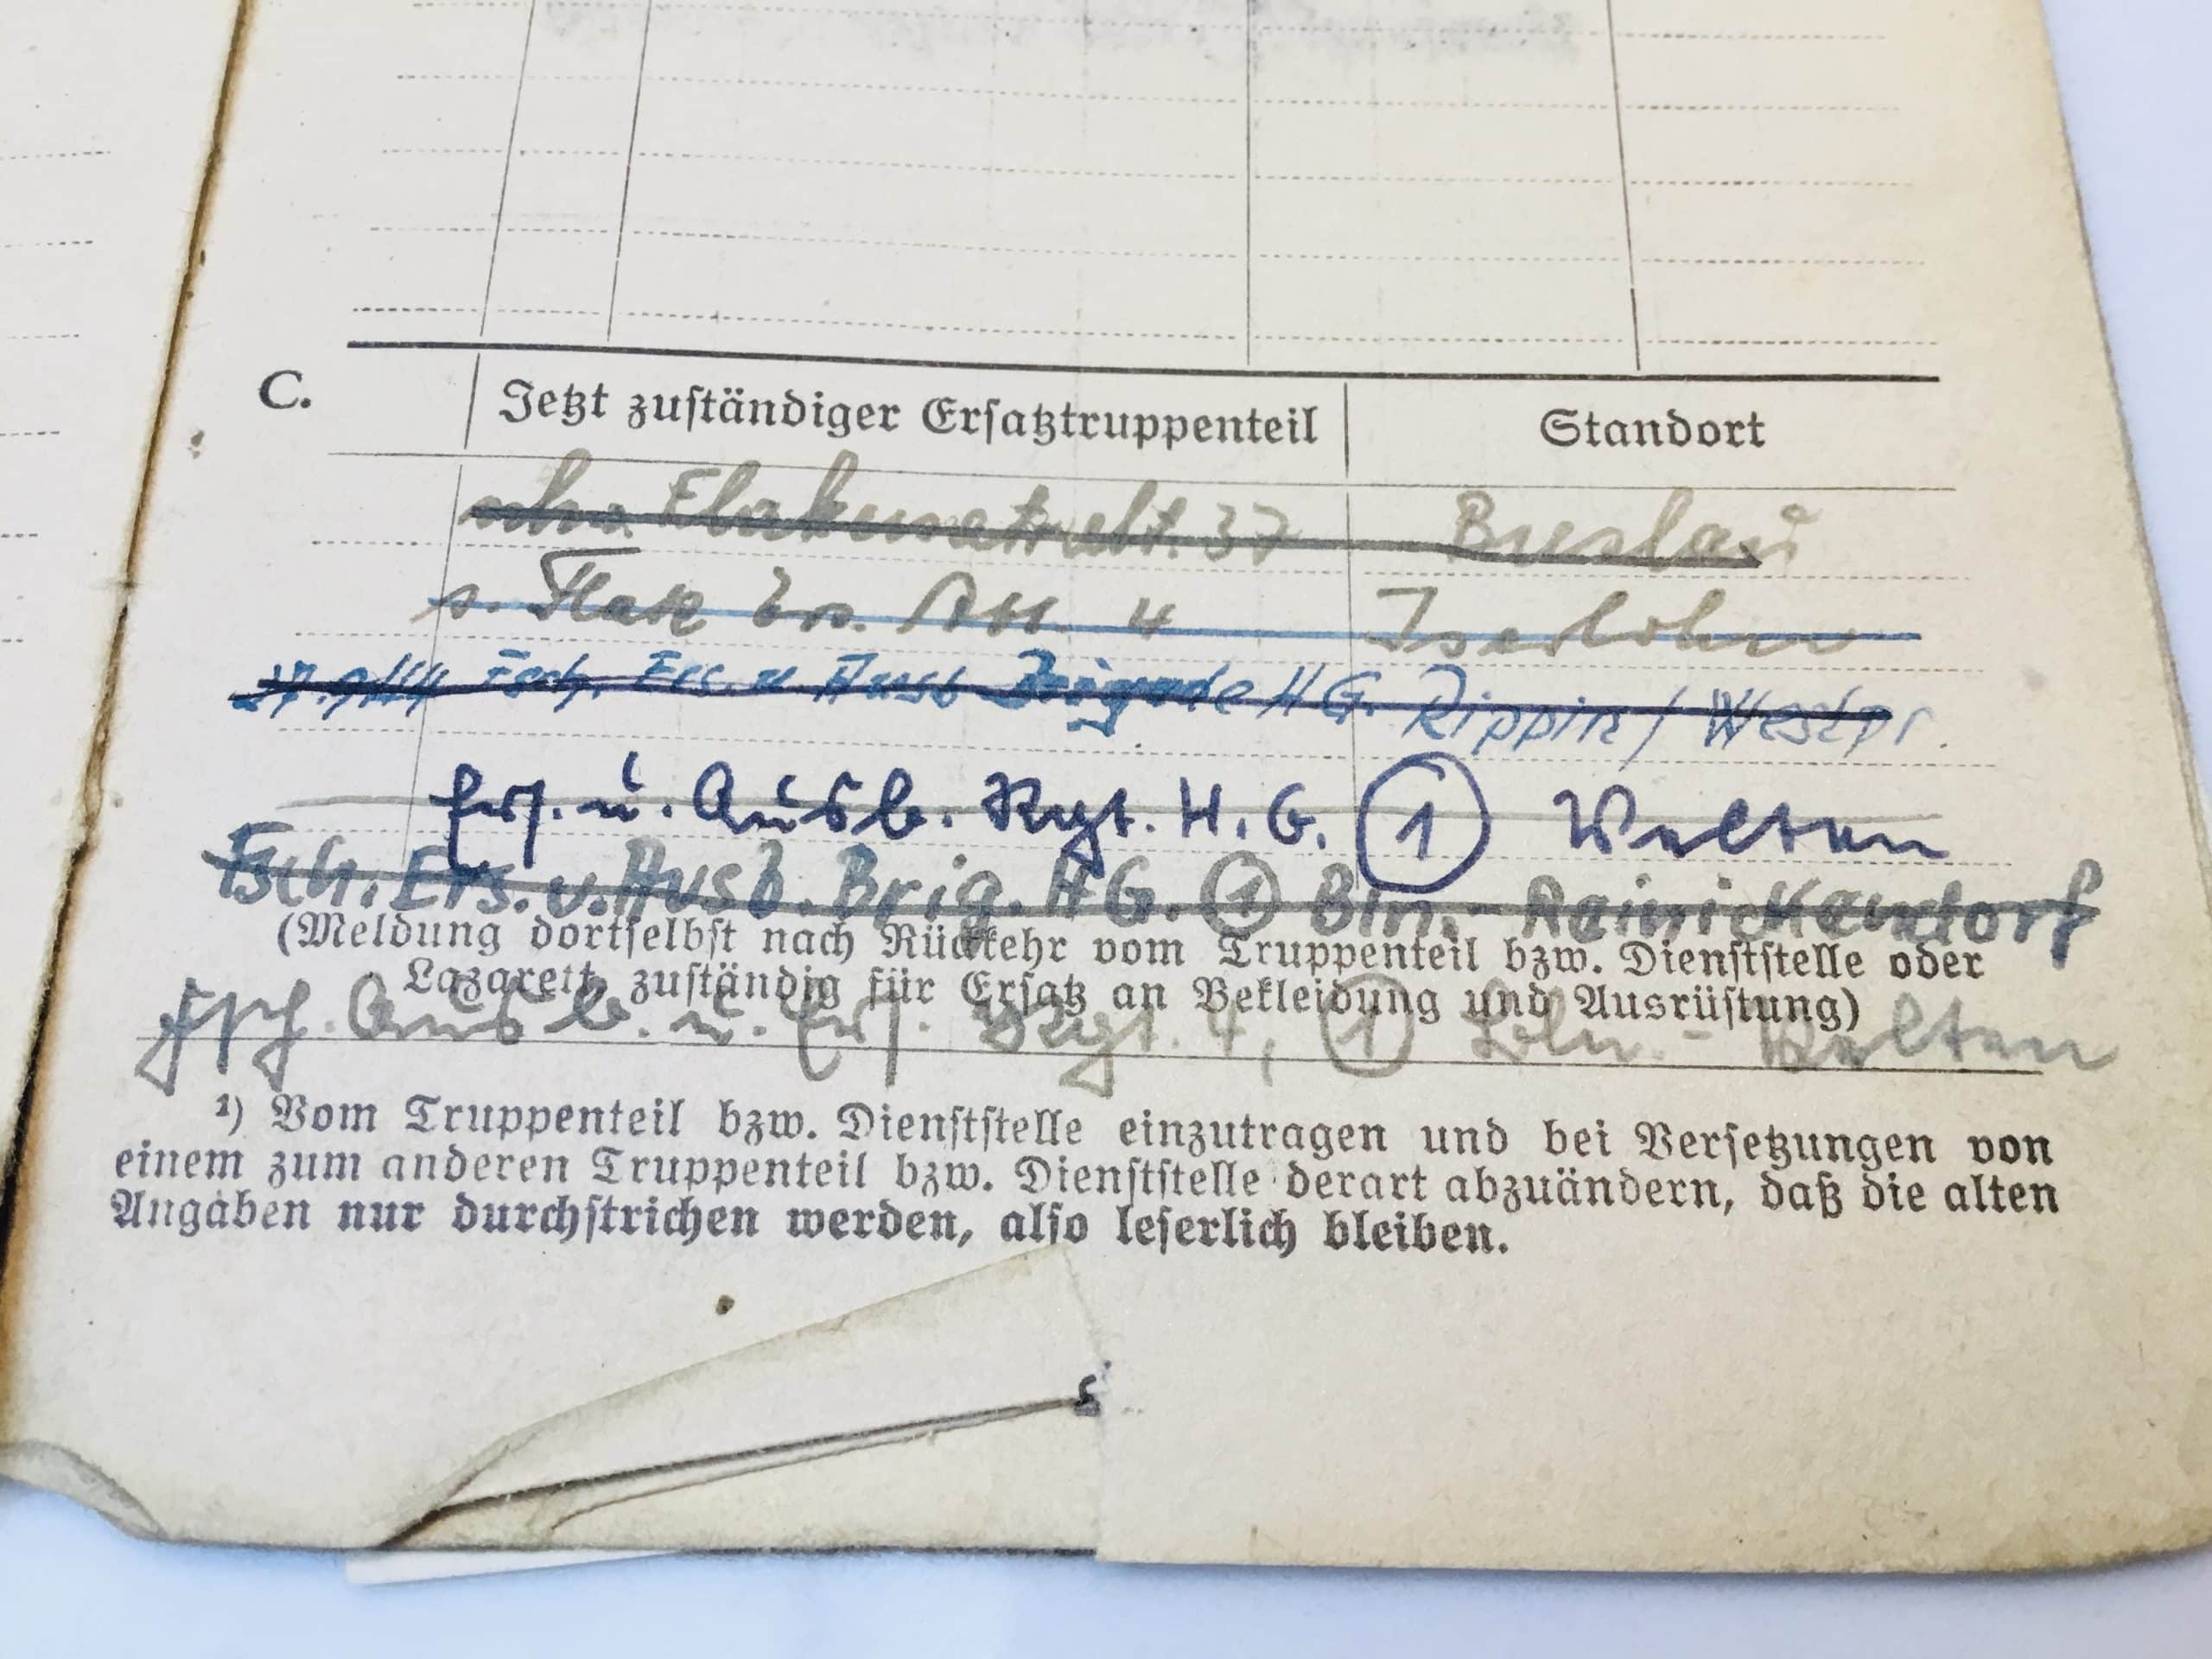 C. Jetzt zuständiger Ersatztruppenteil Standort
Flakersatzabt. 37 Breslau
s. Flak Ers. Abt. 4 Iserlohn
27.9.44 Fsch. Ers. u Ausb Brigade HG. Rippin / Westpr.
Ers. u. Ausb. Rgt. H. G. 1 Velten
Fsch. Ers. u. Ausb. Brig. HG. 1 Bln.-Reinickendorf
(Meldung dortselbst nach Rückkehr vom Truppenteil bzw. Dienststelle oder
Lazarett, zuständig für Ersatz an Bekleidung und Ausrüstung)
Fsch. Ausb. u. Ers. Rgt. 4, 1 Bln. - Velten
¹) Vom Truppenteil bzw. Dienststelle einzutragen und bei Versetzungen von
einem zum anderen Truppenteil bzw. Dienststelle derart abzuändern, daß die alten
Angaben nur durchstrichen werden, also leserlich bleiben.